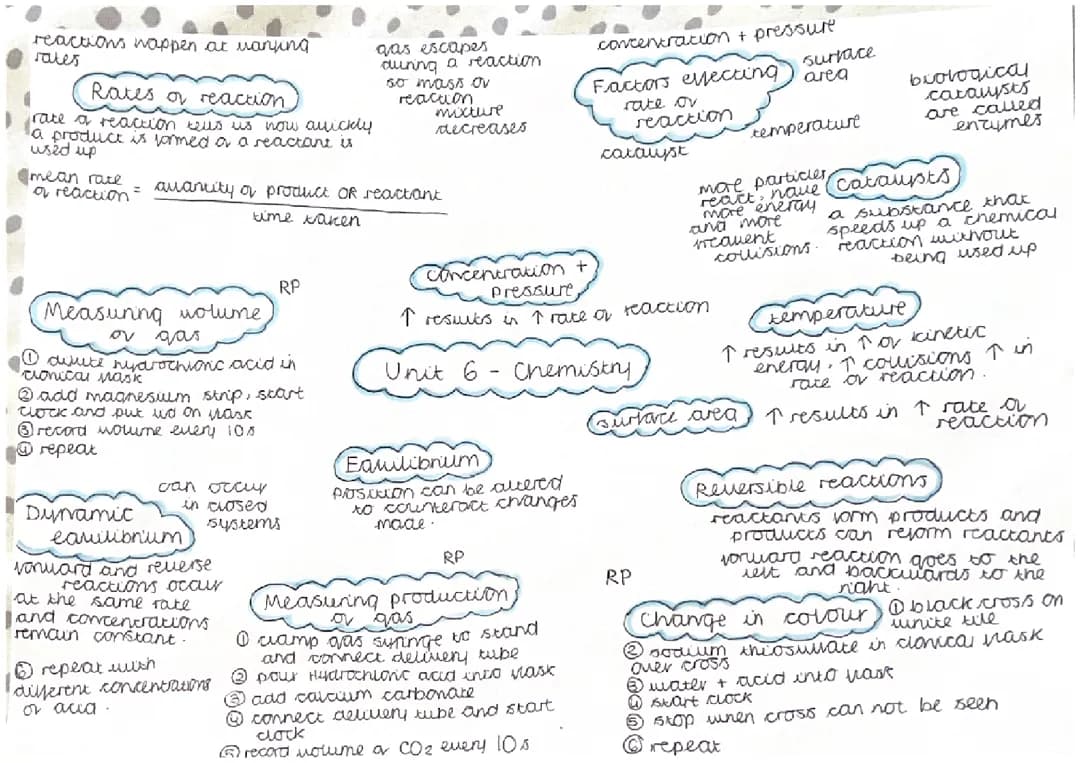 reactions happen at varying
rates
Rates of reaction
rate of reaction tells us how quickly
a product is formed or a reactant is
used up
mean rate
of reaction = quantity of product OR reactant
time taken
gas escapes
during a reaction
so mass of
reaction
mixture
decreases
concentration + pressure
Factors effecting
rate of
reaction
surface
area
temperature
catalyst
biological
catalysts
are called
enzymes
more particles
react, have
more energy
and more
frequent
collisions.
Catalysts
a substance that
speeds up a chemical
reaction without
being used up
Concentration +
pressure
↑ results in ↑ rate of reaction
RP
Measuring volume
of gas
① dilute hydrochloric acid in
clonical flask
② add magnesium strip, start
clock and put lid on flask
③ record volume every 10s
④ repeat
Unit 6 - Chemistry
temperature
↑ results in ↑ of kinetic
energy, ↑ collisions ↑ in
rate of reaction.
surface area
↑ results in ↑ rate of
reaction
Equilibrium
position can be altered
to counteract changes
made.
Reversible reactions
reactants form products and
products can reform reactants
forward reaction goes to the
left and backwards to the
right.
can occur
in closed
systems
Dynamic
equilibrium
forward and reverse
reactions occur
at the same rate
and concentrations
remain constant.
RP
Measuring production
of gas
① clamp gas syringe to stand
and connect delivery tube
② pour Hydrochloric acid into flask
③ add calcium carbonate
④ connect delivery tube and start
clock
⑤ record volume of CO2 every 10s
⑥ repeat with
different concentrations
of acid.
RP
Change in colour
① black cross on
white tile
② sodium thiosulfate in clonical flask
over cross
③ water + acid into flask
④ start clock
⑤ stop when cross can not be seen
⑥ repeat